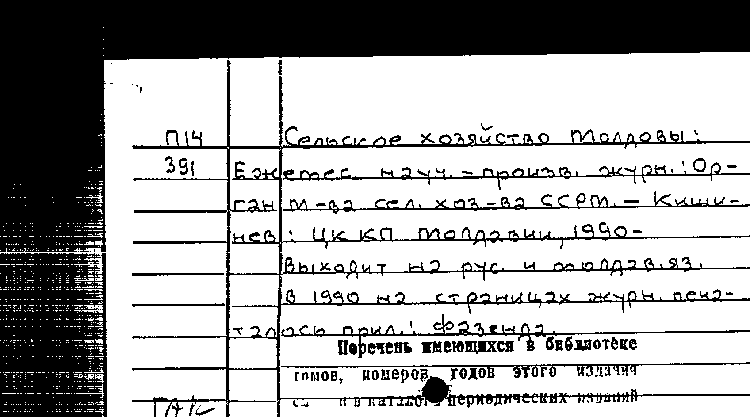 П14 Сельское хозяйство Молдовы:
391 Ежемес. науч.=произв. журн.: Ор-
ган м-ва сел. хоз-ва ССРМ. — Киши-
нев: ЦК КП Молдавии, 1990-
Выходит на рус. и молдав. яз.
В 1990 на страницах журн. печа-
талось прил.: Фазенда.
Перечень имеющихся в библиотеке
томов, номеров, годов этого издания
периодических изданий